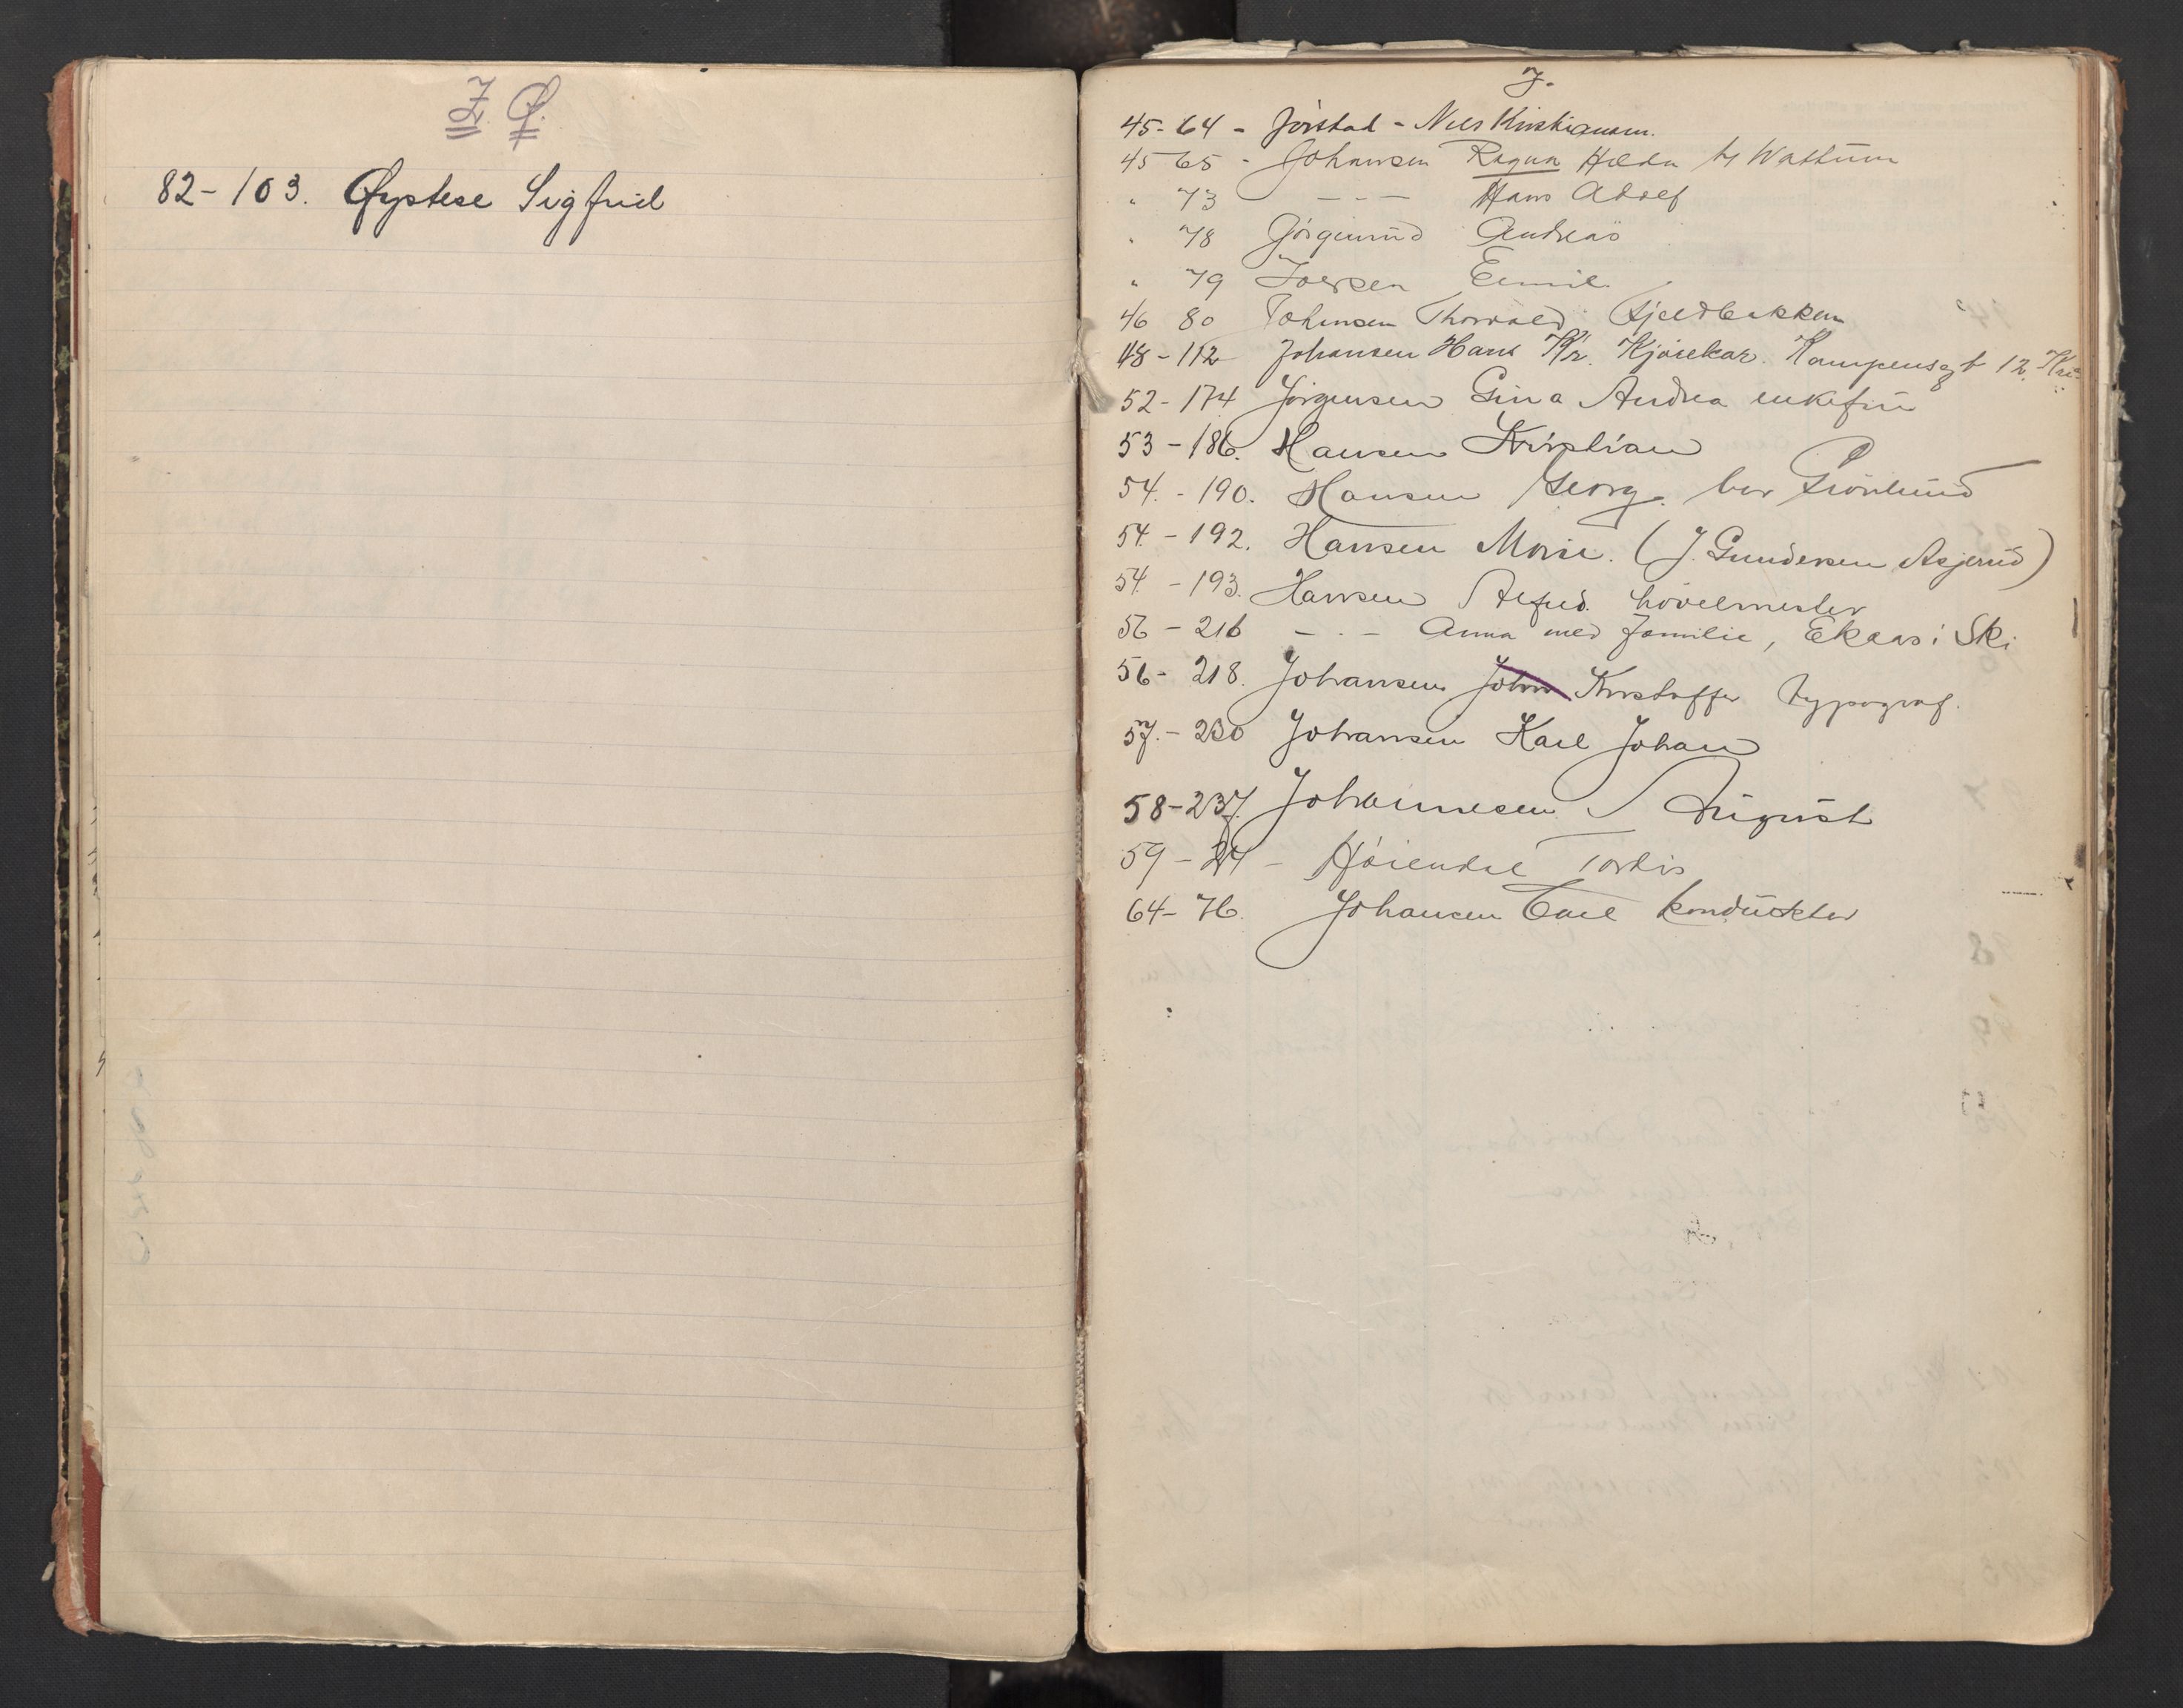 Z. Ø.
82-103. Øystese Sigfrid
J.
45-64 - Jørstad - Nils Kristiansen.
45 65 - Johansen Ragna Hilda
" 73 - - - Hans Adolf
" 78 Jørgenrud Andreas
" 79 Emil
46 80 Johansen Thorvald Fjeldbakken
48-112 Johansen Hans Kr. Kampensgt 12. Kr.a
52-174 Jørgensen Gina Andrea enkefru
53-186. Hansen Kristian
54.-190. Hansen Georg. bor Grönlund
54.-192. Hansen Marie. (J. Gundersen Asjerud)
54.-193. Hansen Alfred. hövelmester
56-216 - - - Anna med familie, Ekaas i Ski
56-218. Johansen John Kristoffer typograf.
57.-230 Johansen Karl Johan
58-237. Johannesen August
59-24 - Høiendal Tordis
64-76. Johansen Carl konduktör